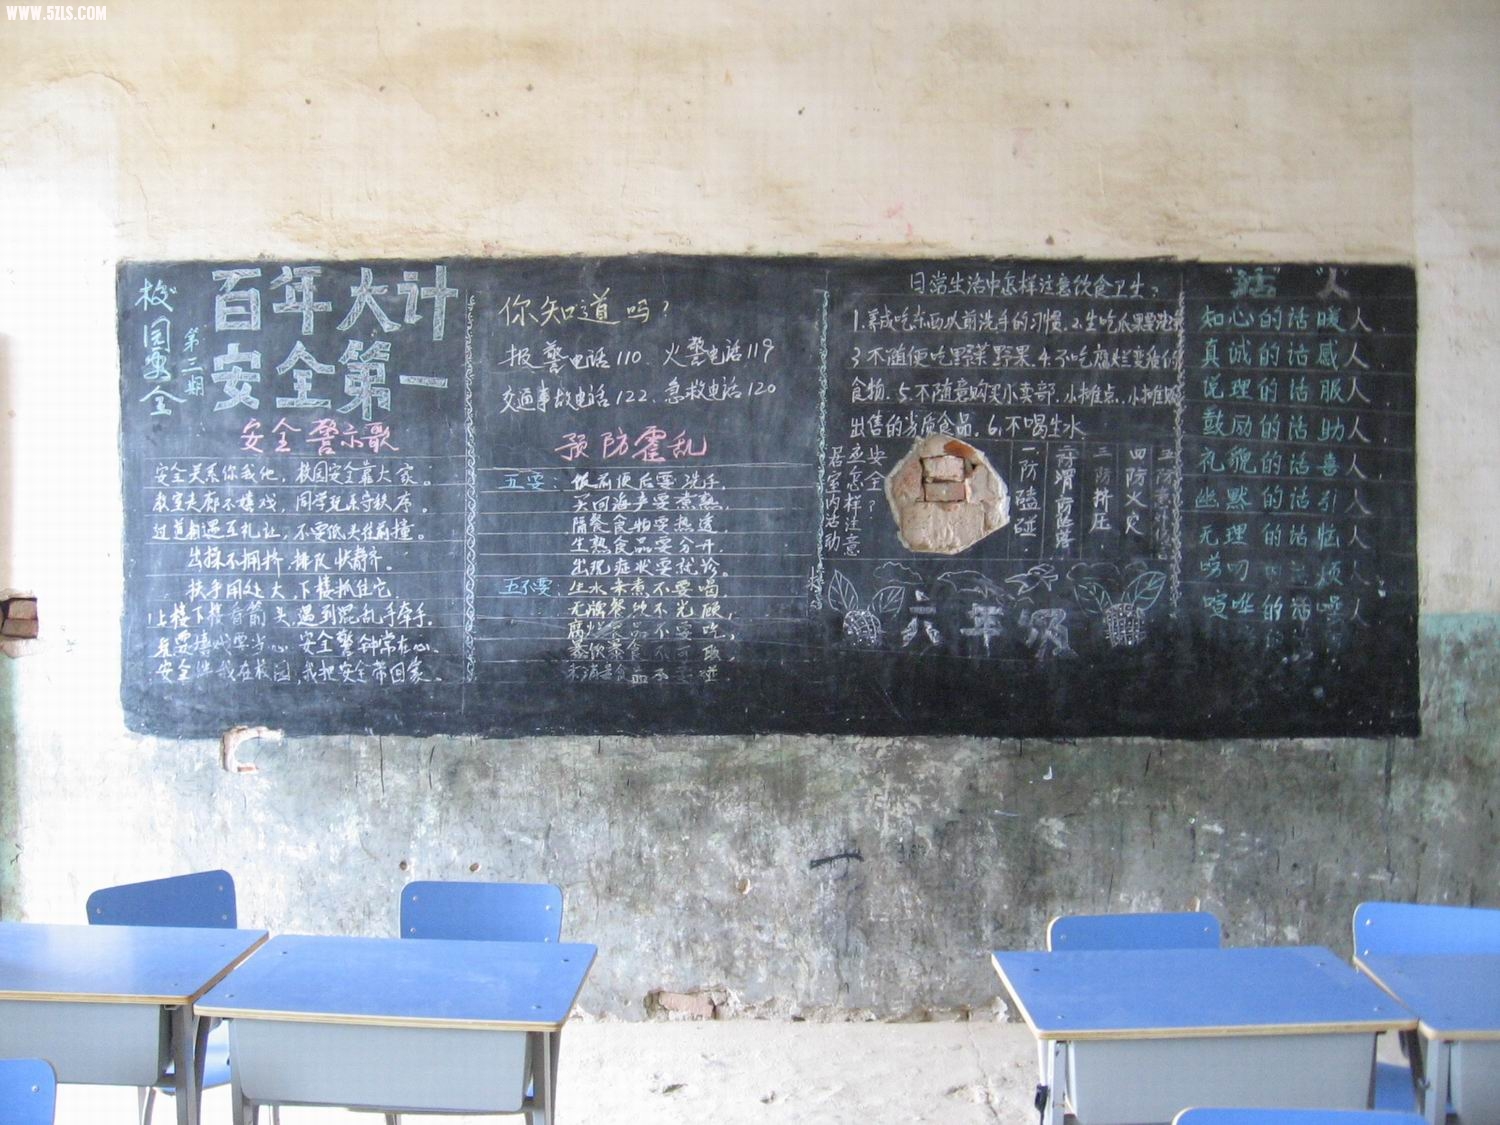 WWW.5ZLS.COM
校园安全
第三期
百年大计
安全第一
安全警示歌
安全关系你我他，校园安全靠大家。
教室走廊不嬉戏，同学玩乐守秩序。
过道相遇互礼让，不要低头往前撞。
出操不拥挤，排队快静齐。
扶手用处大，下楼抓住它。
上楼下楼看前头，遇到混乱手牵手。
安全警钟常在心。
安全伴我在校园，我把安全带回家。
你知道吗？
报警电话110、火警电话119
交通事故电话122、急救电话120
预防霍乱
五要：饭前便后要洗手，
买回海产要煮熟，
隔餐食物要热透，
生熟食品要分开，
出现症状要就诊。
五不要：生水未煮不要喝
无牌餐饮不光顾，
腐烂食品不要吃，
暴饮暴食不可取，
未消毒食品不要碰
日常生活中怎样注意饮食卫生？
1.养成吃东西以前洗手的习惯.2.生吃瓜果要洗
3.不随便吃野菜野果.4.不吃腐烂变质的
食物.5.不随意购买小卖部、小摊点、小摊贩
出售的劣质食品.6.不喝生水
居室内活动
怎样注意
安全？
一防磕碰.
二防滑、防摔
三防挤压.
四防火灾
六年级
“话”“人”
知心的话暖人，
真诚的话感人，
说理的话服人，
鼓励的话助人，
礼貌的话喜人，
幽默的话引人，
无理的话恼人，
唠叨的话烦人，
喧哗的话噪人